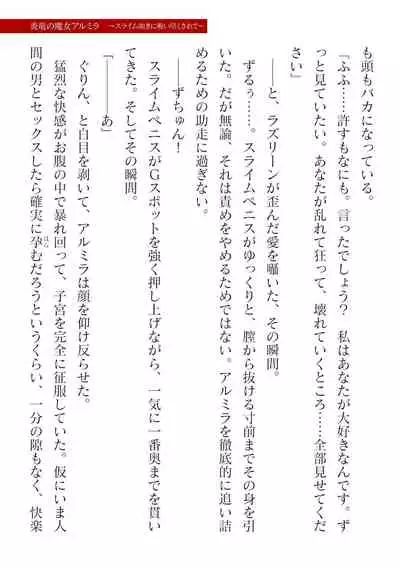 炎竜の魔女アルミラ　～スライム淫獣に吸い尽くされて～
も頭もバカになっている。
「ふふ……許すもなにも。言ったでしょう？　私はあなたが大好きなんです。ず
っと見ていたい。あなたが乱れて狂って、壊れていくところ……全部見せてくだ
さい」
――と、ラズリーンが歪んだ愛を囁いた、その瞬間。
ずるぅ……。スライムペニスがゆっくりと、膣から抜ける寸前までその身を引
いた。だが無論、それは責めをやめるためではない。アルミラを徹底的に追い詰
めるための助走に過ぎない。
――ずちゅん！
スライムペニスがGスポットを強く押し上げながら、一気に一番奥までを貫い
てきた。そしてその瞬間。
「――あ」
ぐりん、と白目を剥いて、アルミラは顔を仰け反らせた。
猛烈な快感がお腹の中で暴れ回って、子宮を完全に征服していた。仮にいま人
間の男とセックスしたら確実に孕むだろうというくらい、一分の隙もなく、快楽